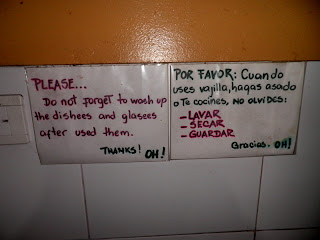 PLEASE...
Do not forget to wash up
the dishees and glasees
after used them.
THANKS! OH!
POR FAVOR: Cuando
uses vajilla, hagas asado
o Te cocines, NO OLVIDES:
- LAVAR
- SECAR
- GUARDAR
Gracias. OH!